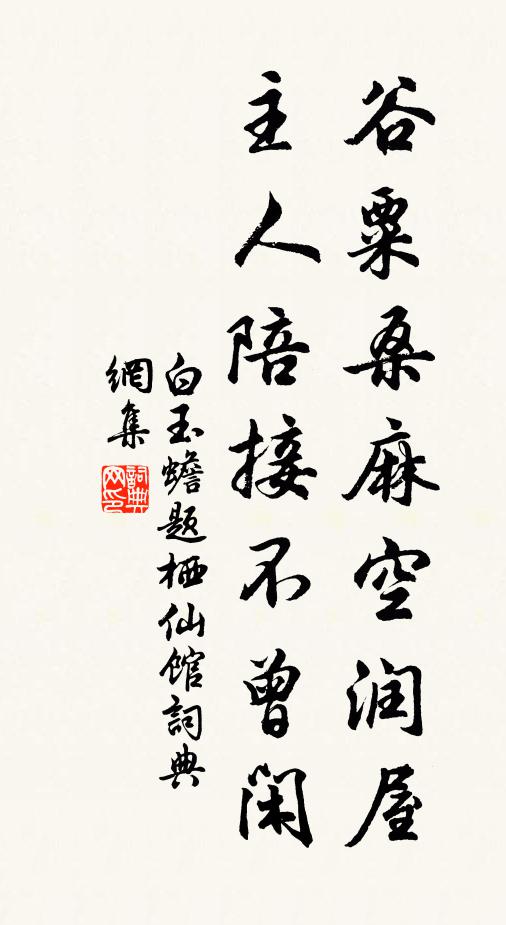 谷粟桑麻空润屋
主人陪接不曾闲
白玉蟾题栖仙馆詞典
網集
詞典网印